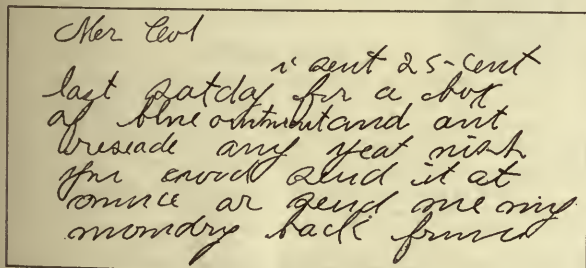 Mer Col
i sent 25-cent
last satday for a box
of blue ointment and ant
reseade any yeat nish
you cood send it at
onnce ar send me my
mondry back frunce